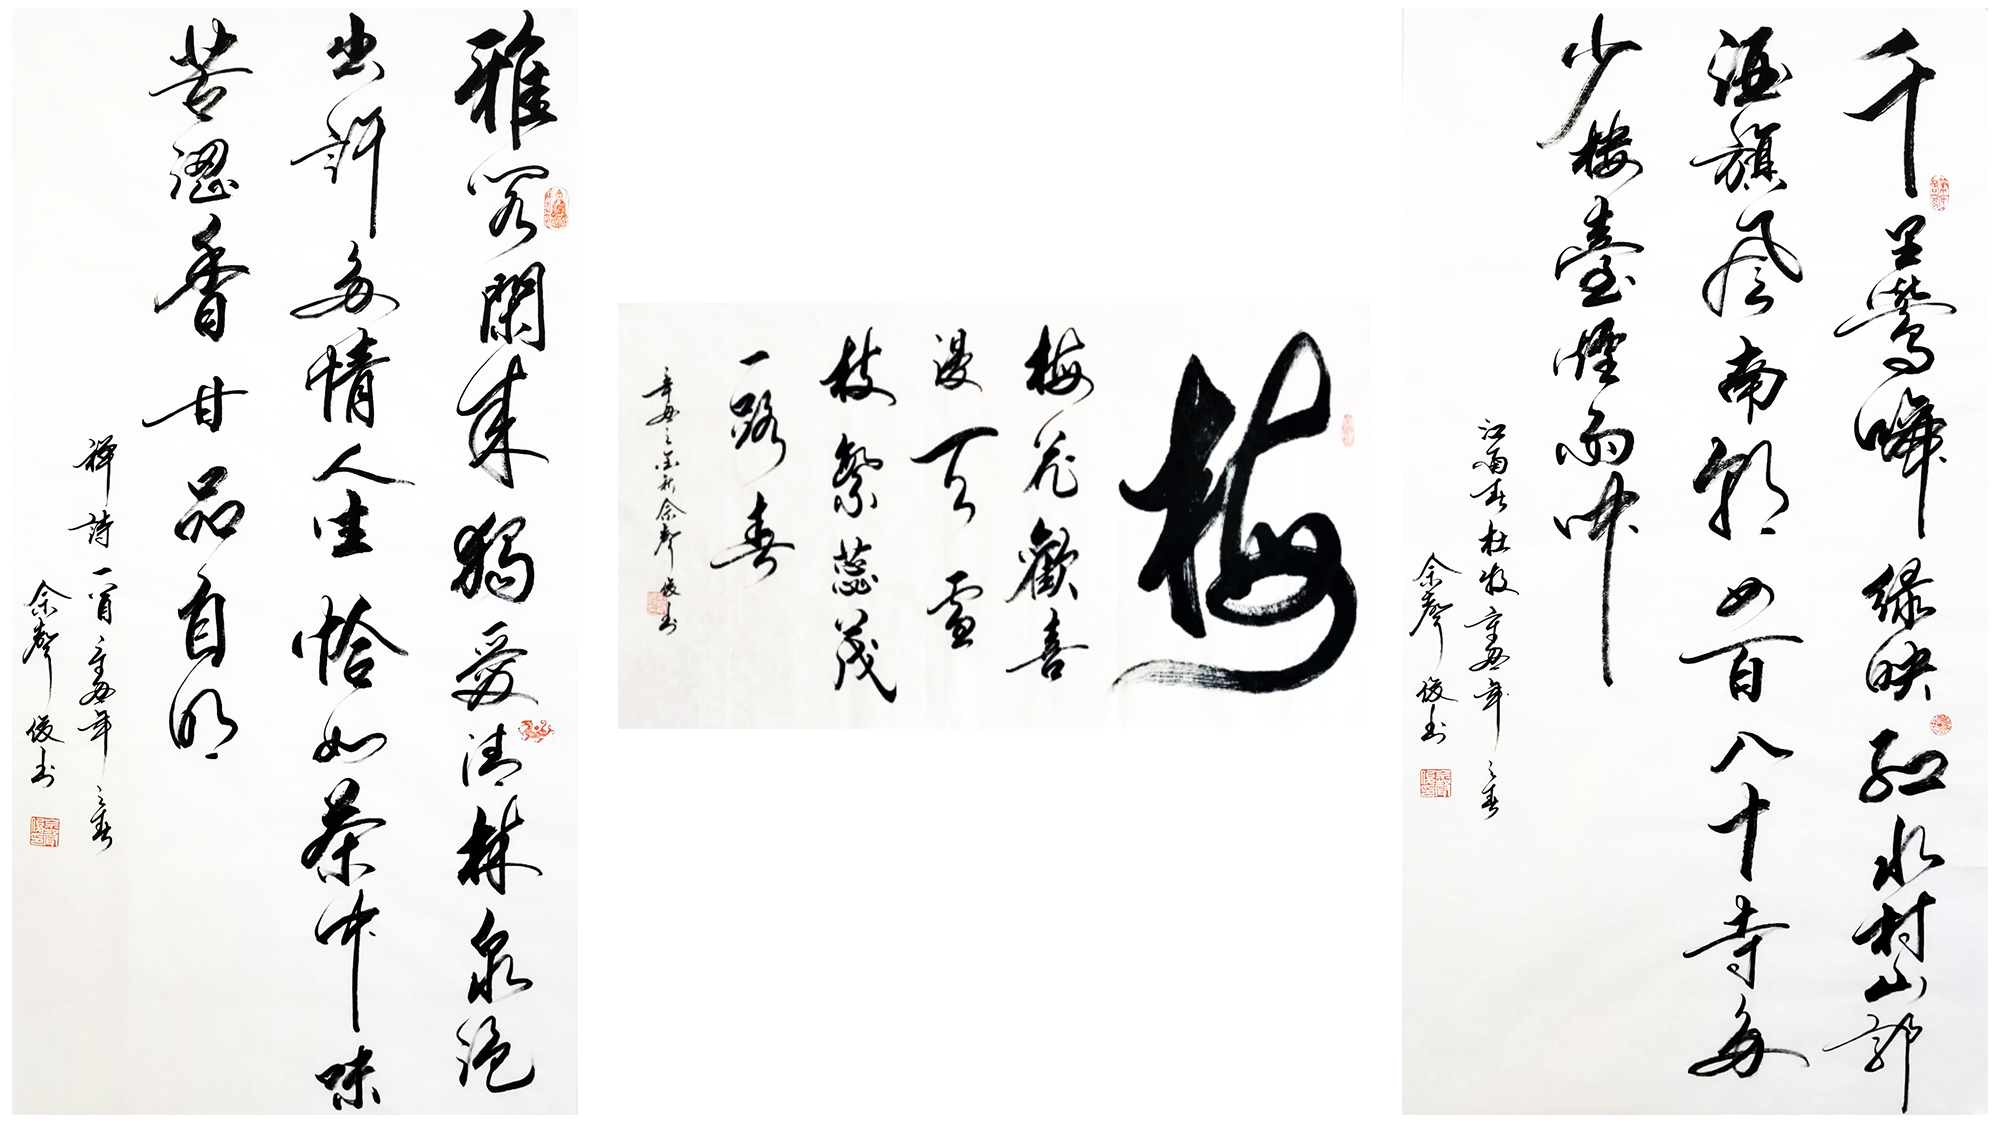 千里鶯啼綠映紅水村山郭
酒旗風南朝四百八十寺多
少樓臺煙雨中
江南春杜牧辛丑年之春
余聲俊书
梅
梅花歡喜
漫天雪
枝繁蕊茂
一路春
辛丑之金秋余聲俊书
雅客閑来獨愛清林泉泡
出許多情人生恰如茶中味
苦澀香甘品自明
禪詩一首辛丑年之春
余聲俊书